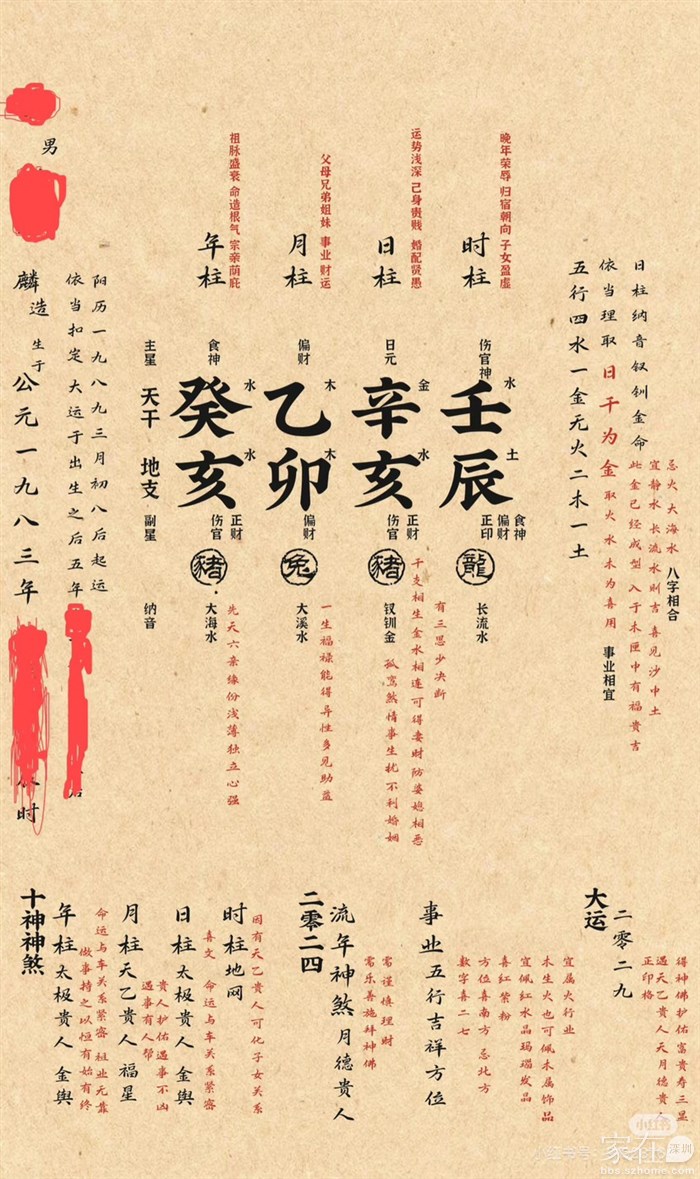 男
麟造 生于 公元一九八三年
时
阳历一九八九三月初八后起运
依当扣定大运于出生之后五年
后
祖脉盛衰 命造根气 宗亲荫庇
年柱
父母兄弟姐妹 事业财运
月柱
运势浅深 己身贵贱 婚配贤愚
日柱
晚年荣辱 归宿朝向 子女盈虚
时柱
主星 食神 偏财 日元 伤官神
天干 癸水 乙木 辛金 壬水
地支 亥水 卯木 亥水 辰土
副星 伤官 正财 偏财 伤官 正财 正印 偏财 食神
豬 兔 豬 龍
纳音 大海水 大溪水 钗钏金 长流水
先天六亲缘份浅薄独立心强
一生福禄能得异性多见助益
孤鸾煞情事生扰不利婚姻
干支相生金水相连可得妻财防婆媳相恶
有三思少决断
日柱纳音钗钏金命
依当理取日干为金 取火水木为喜用
五行四水一金无火二木一土
忌火大海水
宜静水长流水则吉喜见沙中土
此金已经成型入于木匣中有福贵吉
八字相合
事业相宜
十神神煞
年柱太极贵人 金舆
命运与车关系紧密 祖业无靠
做事持之以恒有始有终
月柱天乙贵人 福星
贵人护佑遇事不凶
遇事有人帮
日柱太极贵人金舆
喜文 命运与车关系紧密
时柱地网
因有天乙贵人可化子女关系
二零二四
流年神煞月德贵人
需谨慎理财
需乐善施拜神佛
事业五行吉祥方位
宜属火行业
木生火也可佩木属饰品
宜佩红水晶玛瑙纹品
喜红紫粉
方位喜南方 忌北方
数字喜二七
大运
二零二九
得神佛护佑富贵寿三显
遇天乙贵人天月德贵人
正印格
小红书
家在深圳
bbs.szhome.com